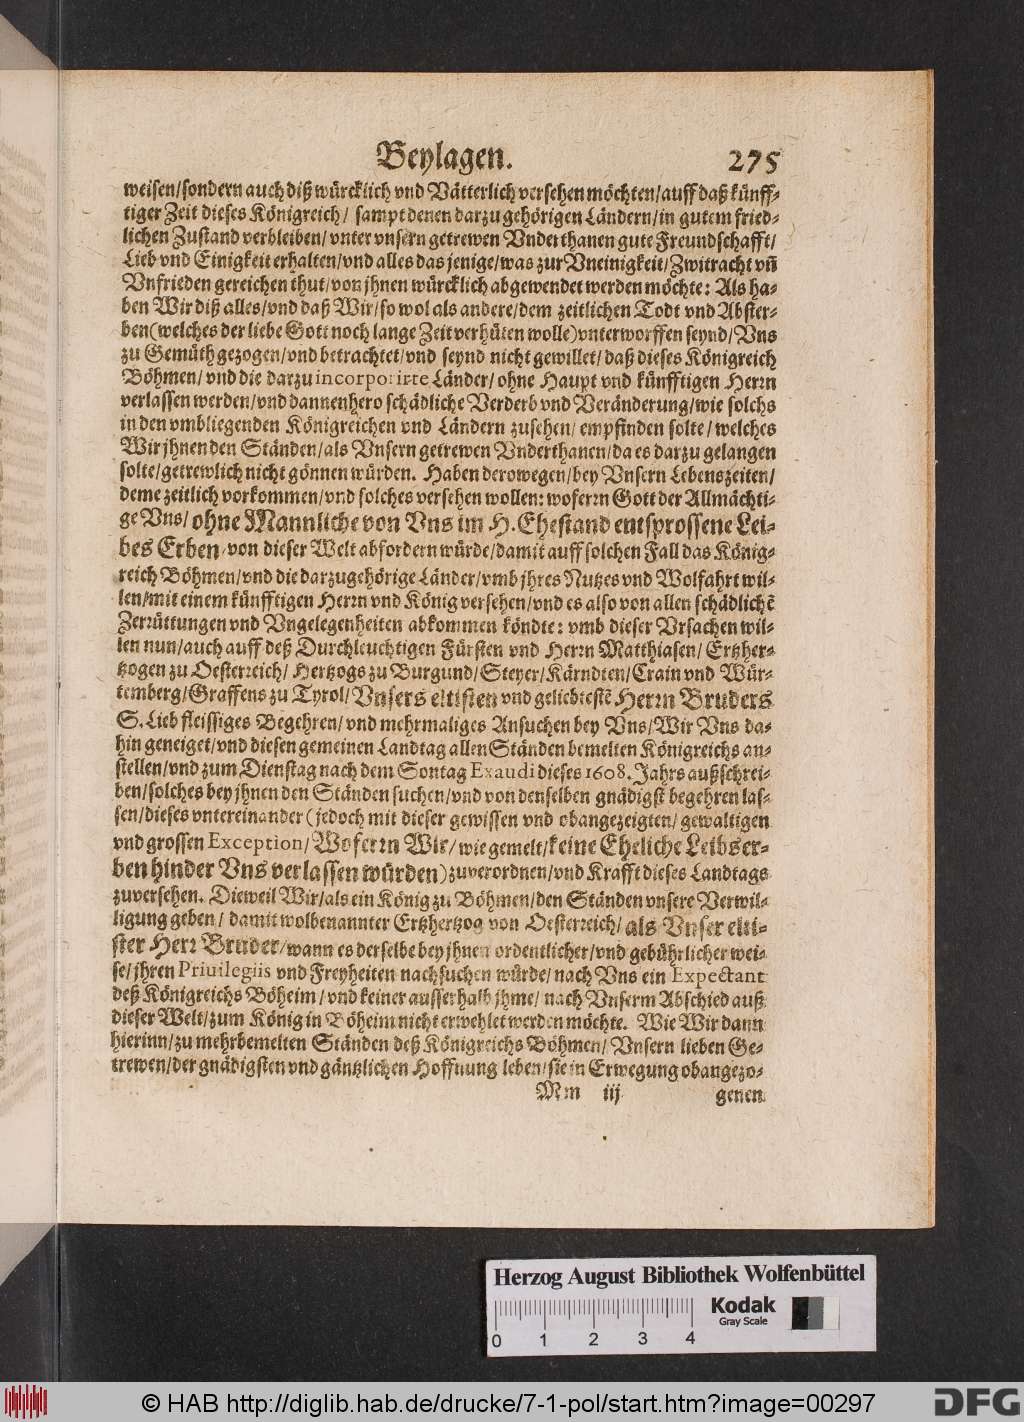 Beylagen. 275
weisen/sondern auch diß würcklich vnd Vätterlich versehen möchten/auff daß künff-
tiger Zeit dieses Königreich/ sampt denen darzu gehörigen Ländern/in gutem fried-
lichen Zustand verbleiben/vnter vnsern getrewen Vnderthanen gute Freundschafft/
Lieb vnd Einigkeit erhalten/vnd alles das jenige/was zur Vneinigkeit/Zwitracht vn̄
Vnfrieden gereichen thut/von jhnen würcklich abgewendet werden möchte: Als ha-
ben Wir diß alles/vnd daß Wir/so wol als andere/dem zeitlichen Todt vnd Abster-
ben(welches der liebe Gott noch lange Zeit verhüten wolle)vnterworffen seynd/Vns
zu Gemüth gezogen/vnd betrachtet/vnd seynd nicht gewillet/daß dieses Königreich
Böhmen/vnd die darzu incorporirte Länder/ohne Haupt vnd künfftigen Herrn
verlassen werden/vnd dannenhero schädliche Verderb vnd Veränderung/wie solchs
in den vmbliegenden Königreichen vnd Ländern zusehen/empfinden solte/welches
Wir jhnen den Ständen/als Vnsern getrewen Vnderthanen/da es darzu gelangen
solte/getrewlich nicht gönnen würden. Haben derowegen/bey Vnsern Lebenszeiten/
deme zeitlich vorkommen/vnd solches versehen wollen: woferrn Gott der Allmächti-
ge Vns/ohne Mannliche von Vns im H. Ehestand entsprossene Lei-
bes Erben/von dieser Welt abfordern würde/damit auff solchen Fall das König-
reich Böhmen/vnd die darzugehörige Länder/vmb jhres Nutzes vnd Wolfahrt wil-
len/mit einem künfftigen Herrn vnd König versehen/vnd es also von allen schädlichē
Zerrüttungen vnd Vngelegenheiten abkommen köndte: vmb dieser Vrsachen wil-
len nun/auch auff deß Durchleuchtigen Fürsten vnd Herrn Matthiasen/ Ertzher-
tzogen zu Oesterreich/ Hertzogs zu Burgund/Steyer/Kärndten/Crain vnd Wür-
temberg/Graffens zu Tyrol/Vnsers eltisten vnd geliebtestē Herrn Bruders
S. Lieb fleissiges Begehren/vnd mehrmaliges Ansuchen bey Vns/Wir Vns da-
hin geneiget/vnd diesen gemeinen Landtag allen Ständen bemelten Königreichs an-
stellen/vnd zum Dienstag nach dem Sontag Exaudi dieses 1608. Jahrs außschrei-
ben/solches bey jhnen den Ständen suchen/vnd von denselben gnädigst begehren las-
sen/dieses vntereinander (jedoch mit dieser gewissen vnd obangezeigten/gewaltigen
vnd grossen Exception/Woferrn Wir/wie gemelt/keine Eheliche Leibser-
ben hinder Vns verlassen würden)zuverordnen/vnd Krafft dieses Landtags
zuversehen. Dieweil Wir/als ein König zu Böhmen/den Ständen vnsere Verwil-
ligung geben/ damit wolbenannter Ertzhertzog von Oesterreich/als Vnser elti-
ster Herr Bruder/wann es derselbe bey jhnen ordentlicher/vnd gebührlicher wei-
se/jhren Priuilegiis vnd Freyheiten nachsuchen würde/nach Vns ein Expectant
deß Königreichs Böheim/vnd keiner ausserhalb jhme/nach Vnserm Abschied auß
dieser Welt/zum König in Böheim nicht erwehlet werden möchte. Wie Wir dann
hierinn/zu mehrbemelten Ständen deß Königreichs Böhmen/Vnsern lieben Ge-
trewen/der gnädigsten vnd gäntzlichen Hoffnung leben/sie in Erwegung obangezo-
Mm iij genen
Herzog August Bibliothek Wolfenbüttel
Kodak
Gray Scale
0 1 2 3 4
© HAB http://diglib.hab.de/drucke/7-1-pol/start.htm?image=00297
DFG